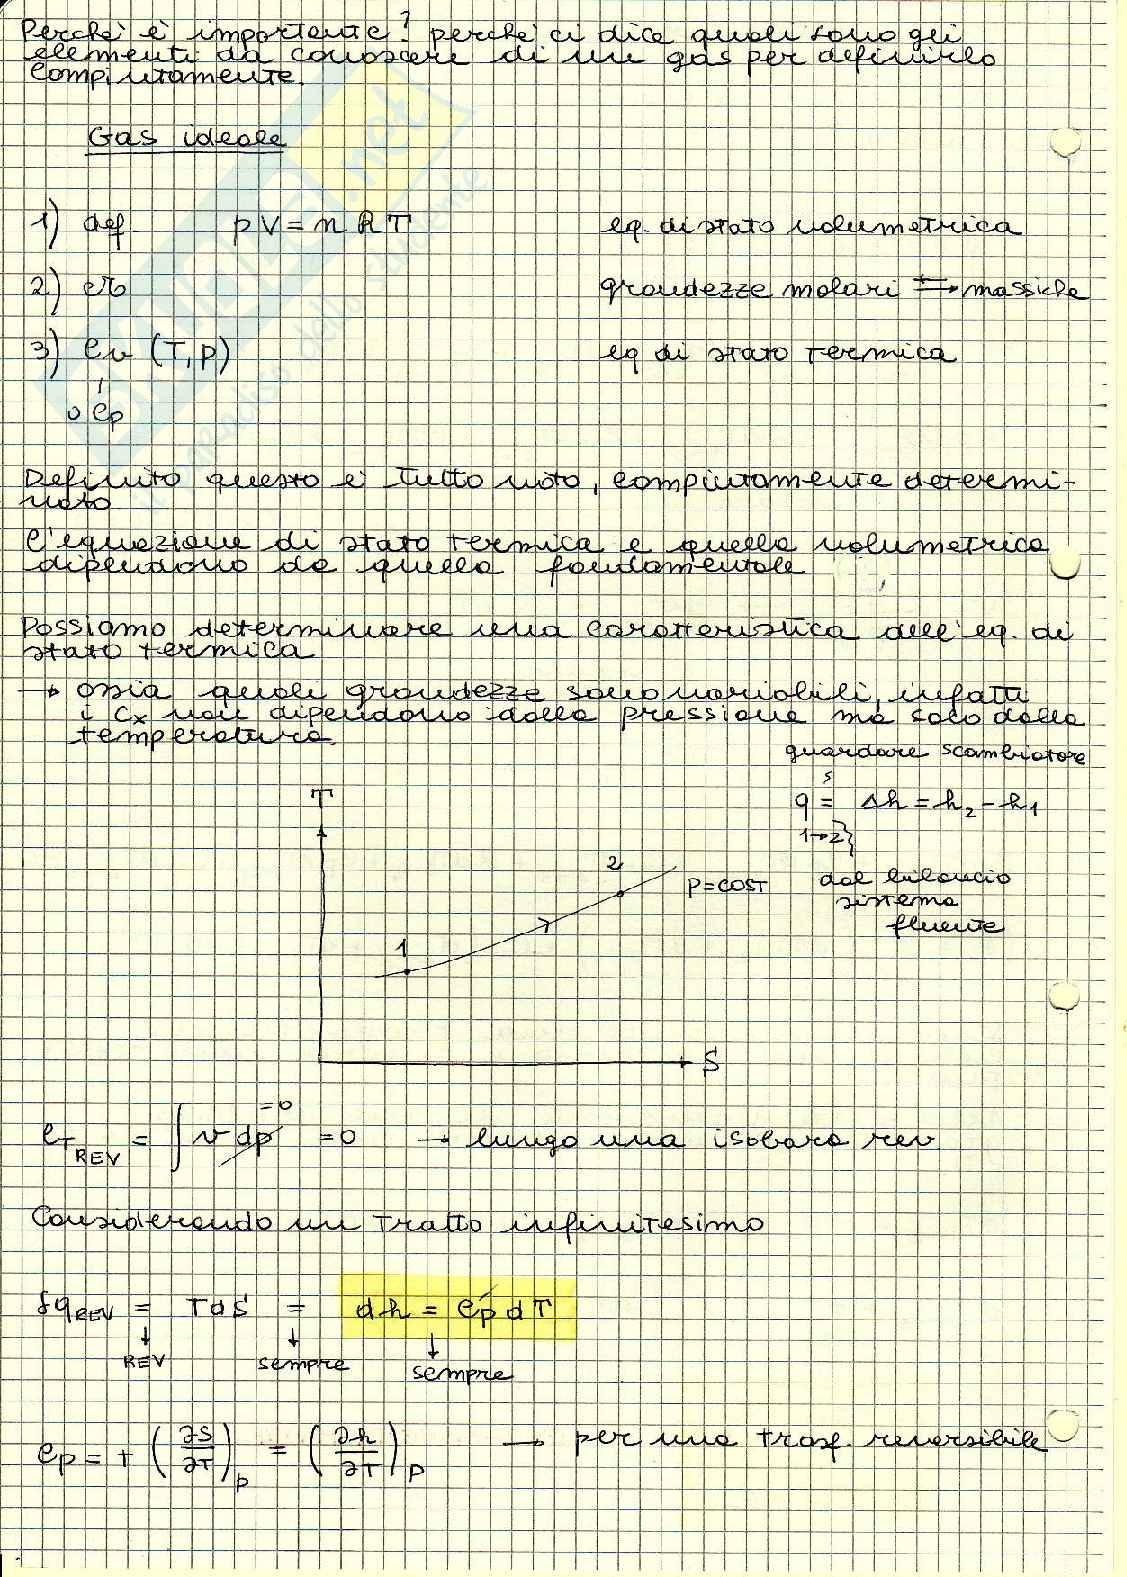 Perché è importante? perché ci dice quali sono gli
elementi da conoscere di un gas per definirlo
compiutamente.
Gas ideale
1) def pV = nRT eq. di stato volumetrica
2) grandezze molari ⇆ massiche
3) cv (T, p) eq di stato termica
o cp
Definito questo è tutto noto, compiutamente determi-
nato
L'equazione di stato termica e quella volumetrica
dipendono da quella fondamentale
Possiamo determinare una caratteristica dell'eq. di
stato termica
→ ossia quali grandezze sono variabili, infatti
i cx non dipendono dalla pressione ma solo dalla
temperatura.
guardare scambiatore
T
q = Δh = h2 - h1
1→2}
2
P=COST
dal bilancio
sistema
fluente
1
S
=0
lT REV = ∫ v dp = 0 → lungo una isobara rev
Considerando un tratto infinitesimo
δq REV = T dS = dh = cp dT
↓ ↓ ↓
REV sempre sempre
cp = + (∂S/∂T)p = (∂h/∂T)p → per una trasf. reversibile